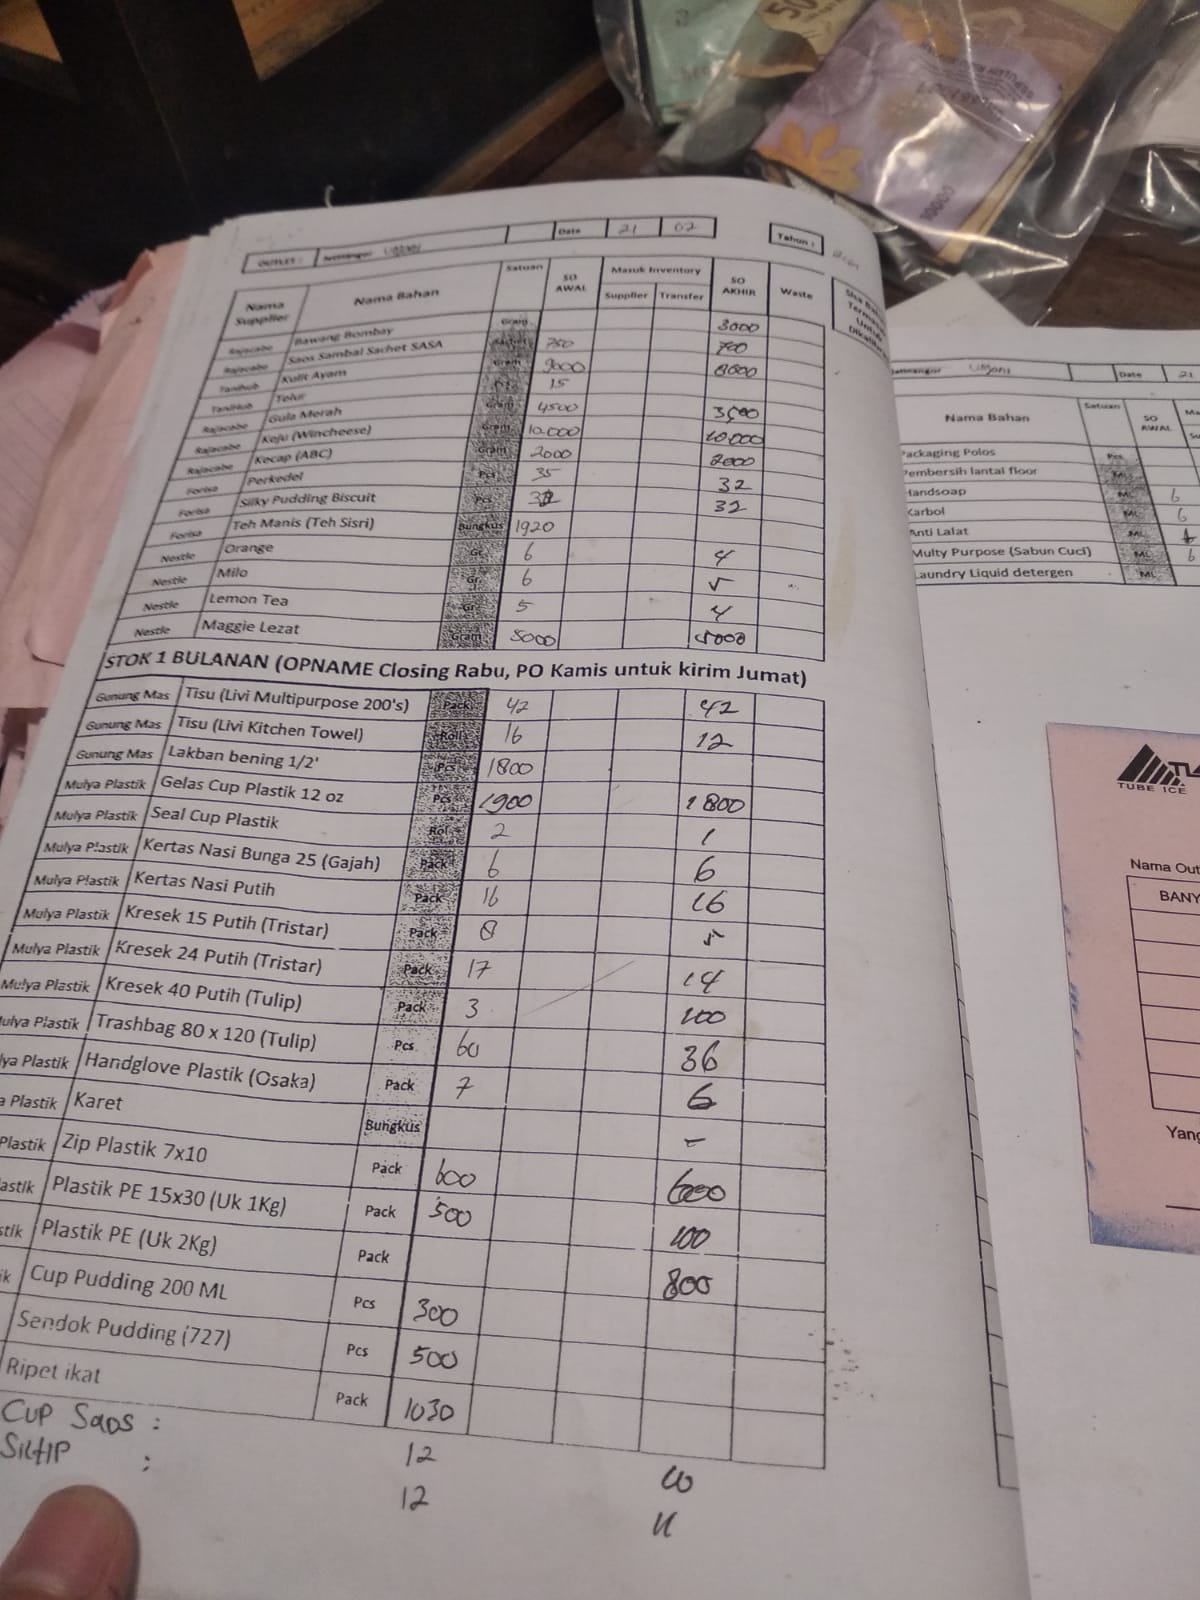 OUTLET : Jatinangor Unpad Date 21 02 Tahun :
Nama Supplier Nama Bahan Satuan SO AWAL Masuk Inventory Supplier Transfer SO AKHIR Waste
Rajacabe Bawang Bombay Gram 3000
Rajacabe Saos Sambal Sachet SASA Sachet 750 700
TaniHub Kulit Ayam Gram 9000 8000
TaniHub Telur Pcs 15
Rajacabe Gula Merah Gram 4500 3500
Rajacabe Keju (Wincheese) Gram 10.000 10.000
Rajacabe Kecap (ABC) Gram 2000 2000
Forisa Perkedel Pcs 35 32
Forisa Silky Pudding Biscuit Pcs 32 32
Forisa Teh Manis (Teh Sisri) Bungkus 1920
Nestle Orange Gr 6 4
Nestle Milo Gr 6 5
Nestle Lemon Tea Gr 5 4
Nestle Maggie Lezat Gram 5000 5000
STOK 1 BULANAN (OPNAME Closing Rabu, PO Kamis untuk kirim Jumat)
Gunung Mas Tisu (Livi Multipurpose 200's) Pack 42 42
Gunung Mas Tisu (Livi Kitchen Towel) Roll 16 12
Gunung Mas Lakban bening 1/2' Pcs 1800
Mulya Plastik Gelas Cup Plastik 12 oz Pcs 1900 1800
Mulya Plastik Seal Cup Plastik Rol 2 1
Mulya Plastik Kertas Nasi Bunga 25 (Gajah) Pack 6 6
Mulya Plastik Kertas Nasi Putih Pack 16 16
Mulya Plastik Kresek 15 Putih (Tristar) Pack 8 5
Mulya Plastik Kresek 24 Putih (Tristar) Pack 17 14
Mulya Plastik Kresek 40 Putih (Tulip) Pack 3 100
ulya Plastik Trashbag 80 x 120 (Tulip) Pcs 60 36
lya Plastik Handglove Plastik (Osaka) Pack 7 6
a Plastik Karet Bungkus -
Plastik Zip Plastik 7x10 Pack 600 600
lastik Plastik PE 15x30 (Uk 1Kg) Pack 500 100
stik Plastik PE (Uk 2Kg) Pack 800
ik Cup Pudding 200 ML Pcs 300
Sendok Pudding (727) Pcs 500
Ripet ikat Pack 1030
CUP Saos : 12
SILTIP : 12
Jatinangor Date 21
Nama Bahan Satuan SO AWAL
Packaging Polos Pcs
Pembersih lantal floor ML
Handsoap ML 6
Karbol ML 6
Anti Lalat ML
Multy Purpose (Sabun Cuci) ML 6
Laundry Liquid detergen ML
TUBE ICE
Nama Out
BANY
Yang